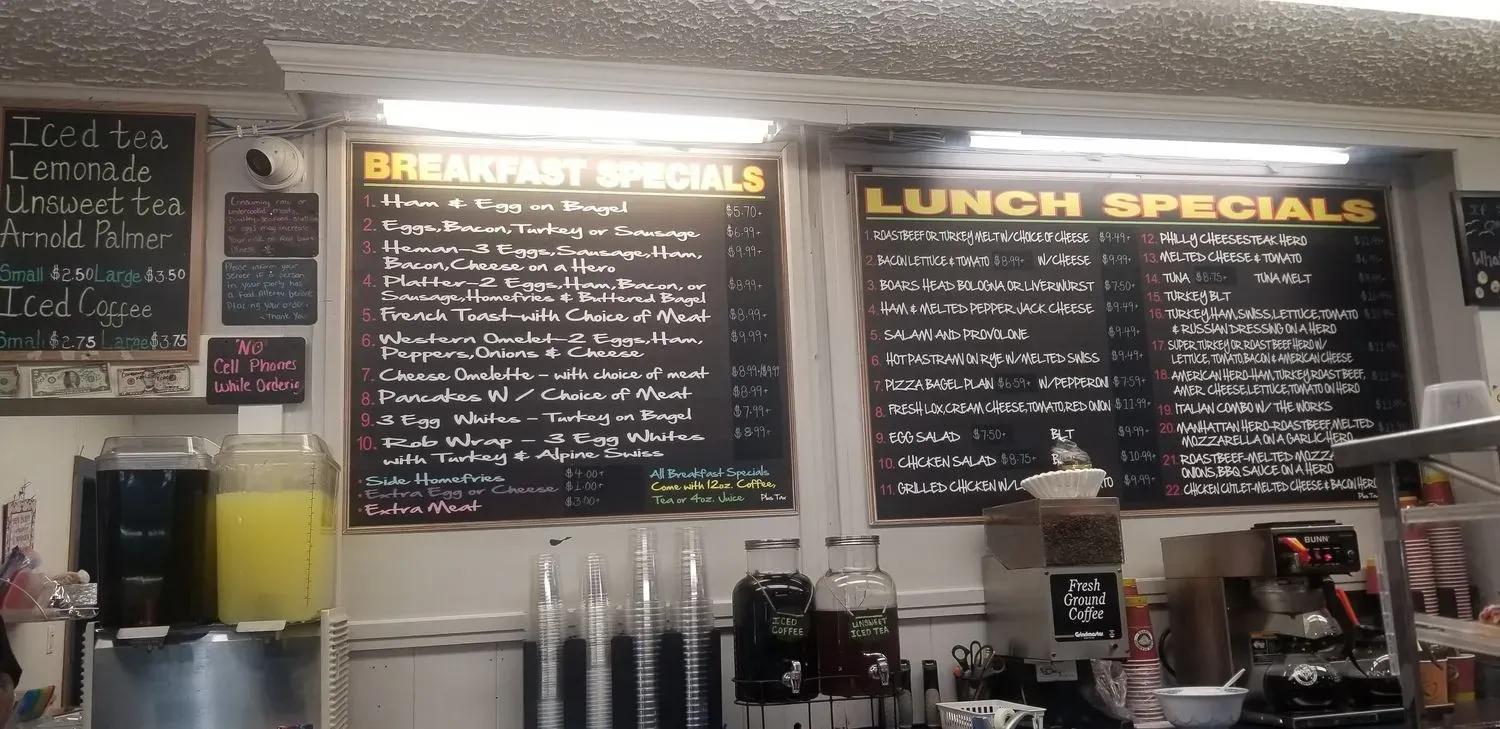 Iced tea
Lemonade
Unsweet tea
Arnold Palmer
Small $2.50 Large $3.50
Iced Coffee
Small $2.75 Large $3.75
Consuming raw or
undercooked meats,
poultry, seafood, shellfish
or eggs may increase
your risk of food borne
illness
Please inform your
server if a person
in your party has
a food allergy before
placing your order.
-Thank You
"NO
Cell Phones
While Orderin
BREAKFAST SPECIALS
1. Ham & Egg on Bagel $5.70+
2. Eggs, Bacon, Turkey or Sausage $6.99+
3. Heman-3 Eggs, Sausage, Ham, $9.99+
Bacon, Cheese on a Hero
4. Platter-2 Eggs, Ham, Bacon, or $8.99+
Sausage, Homefries & Buttered Bagel
5. French Toast-with Choice of Meat $8.99+
6. Western Omelet-2 Eggs, Ham, $9.99+
Peppers, Onions & Cheese
7. Cheese Omelette - with choice of meat $8.99+/$9.99
8. Pancakes W / Choice of Meat $8.99+
9. 3 Egg Whites - Turkey on Bagel $7.99+
10. Rob Wrap - 3 Egg Whites $8.99+
with Turkey & Alpine Swiss
• Side Homefries $4.00+
• Extra Egg or Cheese $1.00+
• Extra Meat $3.00+
All Breakfast Specials
Come with 12oz. Coffee,
Tea or 4oz. Juice
Plus Tax
LUNCH SPECIALS
1. ROASTBEEF OR TURKEY MELT W/CHOICE OF CHEESE $9.49+
2. BACON LETTUCE & TOMATO $8.99+ W/CHEESE $9.99+
3. BOARS HEAD BOLOGNA OR LIVERWURST $7.50+
4. HAM & MELTED PEPPER JACK CHEESE $9.49+
5. SALAMI AND PROVOLONE $9.49+
6. HOT PASTRAMI ON RYE W/MELTED SWISS $9.49+
7. PIZZA BAGEL PLAIN $6.59+ W/PEPPERONI $7.59+
8. FRESH LOX, CREAM CHEESE, TOMATO, RED ONION $11.99+
9. EGG SALAD $7.50+ BLT $9.99+
10. CHICKEN SALAD $8.75+ $10.99+
11. GRILLED CHICKEN W/L TO $9.99+
12. PHILLY CHEESESTEAK HERO
13. MELTED CHEESE & TOMATO
14. TUNA $8.75+ TUNA MELT
15. TURKEY BLT
16. TURKEY, HAM, SWISS, LETTUCE, TOMATO
& RUSSIAN DRESSING ON A HERO
17. SUPER TURKEY OR ROAST BEEF HERO W/
LETTUCE, TOMATO, BACON & AMERICAN CHEESE
18. AMERICAN HERO-HAM, TURKEY, ROAST BEEF,
AMER. CHEESE, LETTUCE, TOMATO ON HERO
19. ITALIAN COMBO W/ THE WORKS
20. MANHATTAN HERO-ROASTBEEF MELTED
MOZZARELLA ON A GARLIC HERO
21. ROASTBEEF-MELTED MOZZ
ONIONS, BBQ SAUCE ON A HERO
22. CHICKEN CUTLET-MELTED CHEESE & BACON HERO
Plus Tax
ICED
COFFEE
UNSWEET
ICED TEA
Fresh
Ground
Coffee
Grindmaster
BUNN